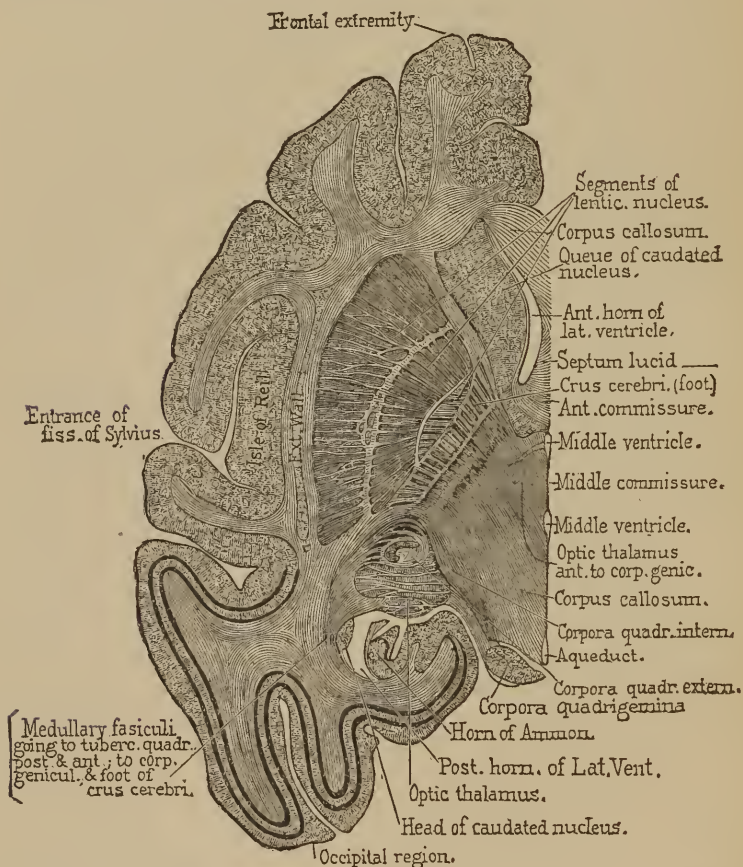 Frontal extremity
Segments of
lentic. nucleus.
Corpus callosum.
Queue of caudated
nucleus.
Ant. horn of
lat. ventricle.
Septum lucid
Crus cerebri. (foot)
Ant. commissure.
Middle ventricle.
Middle commissure.
Middle ventricle.
Optic thalamus
ant. to corp. genic.
Corpus callosum.
Corpora quadr. intern.
Aqueduct.
Corpora quadr. extern.
Corpora quadrigemina
Horn of Ammon.
Post. horn. of Lat. Vent.
Optic thalamus.
Head of caudated nucleus.
Occipital region.
Entrance of
fiss. of Sylvius
Isle of Reil
Ext. Wall
Medullary fasiculi
going to tuberc. quadr.
post. & ant.; to corp.
genicul. & foot of
crus cerebri.